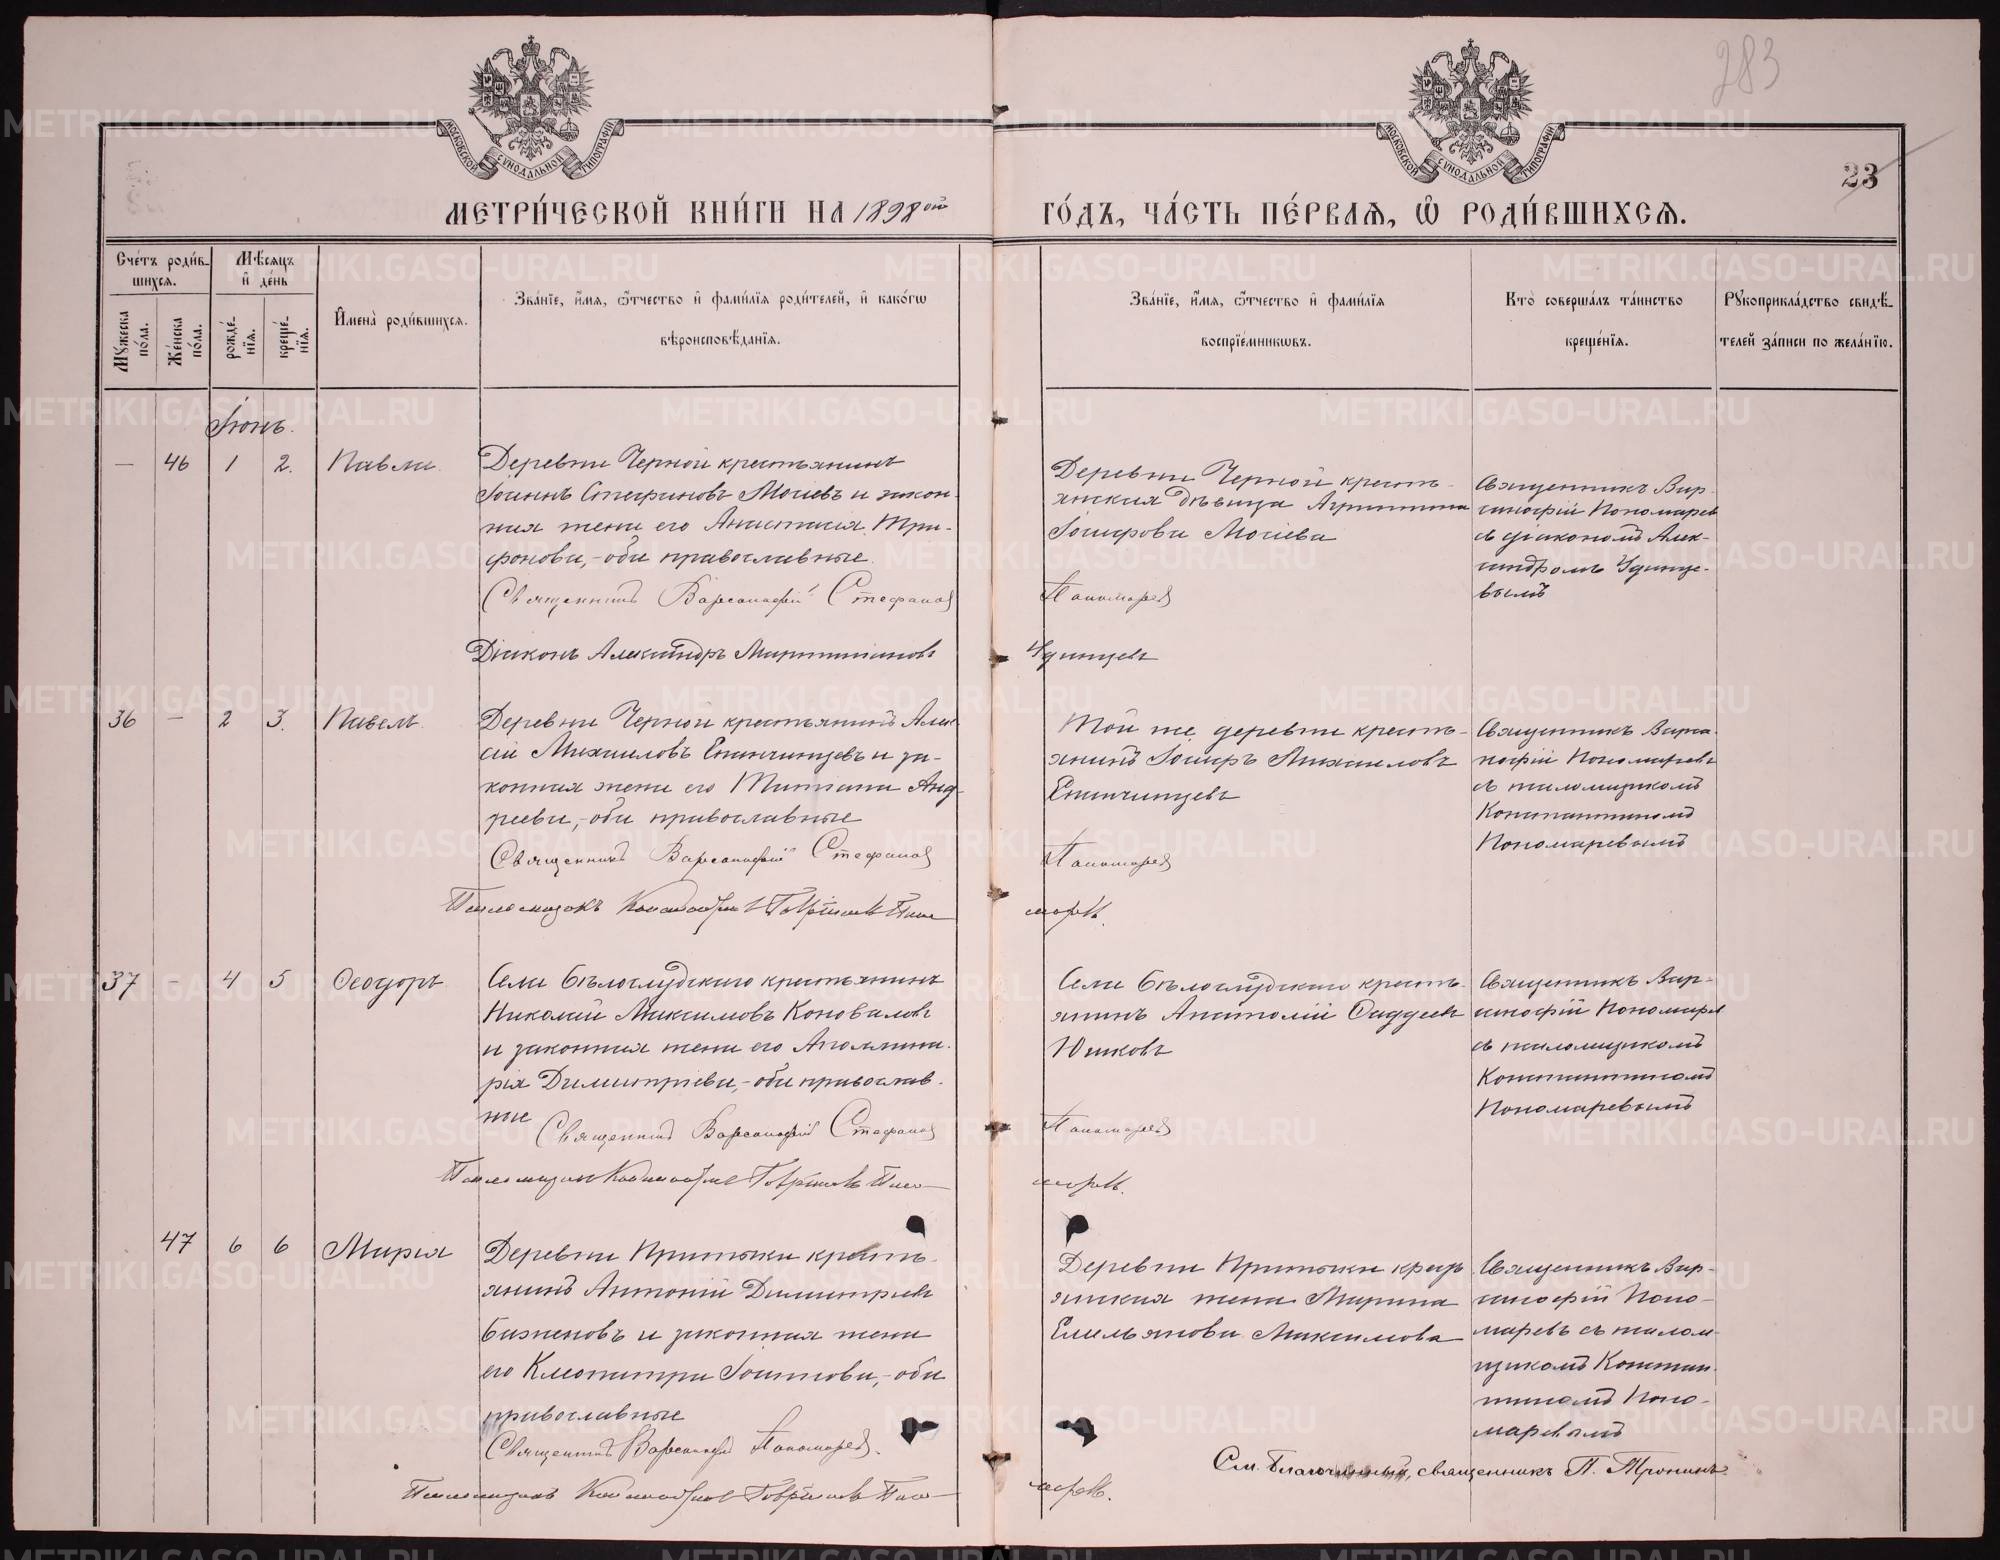 283
23
МОСКОВСКОЙ СѴНОДАЛЬНОЙ ТИПОГРАФІИ
МОСКОВСКОЙ СѴНОДАЛЬНОЙ ТИПОГРАФІИ
МЕТРИ́ЧЕСКОЙ КНИ́ГИ НА 1898ой ГО́ДЪ, ЧА́СТЬ ПЕ́РВАѦ, Ѽ РОДИ́ВШИХСѦ.
Сче́тъ роди́в-
шихсѧ.
Мꙋ́жеска по́ла.
Же́нска по́ла.
Мѣ́сѧцъ
и҆ де́нь
рожде́-
нїѧ.
креще́-
нїѧ.
И҆мена̀ роди́вшихсѧ.
Зва́нїе, и҆́мѧ, ѻ҆́тчество и҆ фами́лїѧ роди́телей, и҆ како́гѡ
вѣроисповѣ́данїѧ.
Зва́нїе, и҆́мѧ, ѻ҆́тчество и҆ фами́лїѧ
воспрїе́мникѡвъ.
Кто̀ соверша́лъ та́инство
креще́нїѧ.
Рꙋкоприкла́дство свидѣ́-
телей за́писи по жела́нїю.
Іюнь.
— 46 1 2. Павла
Деревни Черной крестьянинъ
Іоаннъ Стефановъ Мосіевъ и закон-
ная жена его Анастасія Три-
фонова,-оба православные.
Священникъ Варсанофій Стефановъ Пономаревъ
Діаконъ Александръ Мартиніановъ Удинцевъ
Деревни Черной кресть-
янская дѣвица Агриппина
Іосифова Мосіева
Священникъ Вар-
санофій Пономаревъ
съ діакономъ Алек-
сандромъ Удинце-
вымъ
36 — 2 3. Павелъ
Деревни Черной крестьянинъ Алек-
сій Михаиловъ Епанчинцевъ и за-
конная жена его Татіана Анд-
реева,-оба православные
Священникъ Варсанофій Стефановъ Пономаревъ
Псаломщикъ Константинъ Гавріиловъ Поно-
маревъ.
Той же деревни кресть-
янинъ Іосифъ Михаиловъ
Епанчинцевъ
Священникъ Варса-
нофій Пономаревъ
съ псаломщикомъ
Константиномъ
Пономаревымъ
37 - 4 5 Ѳеодоръ
Села Бѣлослудскаго крестьянинъ
Николай Максимовъ Коноваловъ
и законная жена его Аполлина-
рія Димитріева,-оба православ-
ные
Священникъ Варсанофій Стефановъ Пономаревъ
Псаломщикъ Константинъ Гавріиловъ Поно-
маревъ.
Села Бѣлослудскаго кресть-
янинъ Анатолій Ѳаддеевъ
Юшковъ
Священникъ Вар-
санофій Пономаревъ
съ псаломщикомъ
Константиномъ
Пономаревымъ
47 6 6 Марія
Деревни Притыки кресть-
янинъ Антоній Димитріевъ
Баженовъ и законная жена
его Клеопатра Іоаннова,-оба
православные
Священникъ Варсанофій Пономаревъ.
Псаломщикъ Константинъ Гавріиловъ Поно-
маревъ.
Деревни Притыки кресть-
янская жена Марина
Емельянова Максимова
Священникъ Вар-
санофій Поно-
маревъ съ псалом-
щикомъ Констан-
тиномъ Поно-
маревымъ
См. Благочинный, священникъ П. Тронинъ.
METRIKI.GASO-URAL.RU